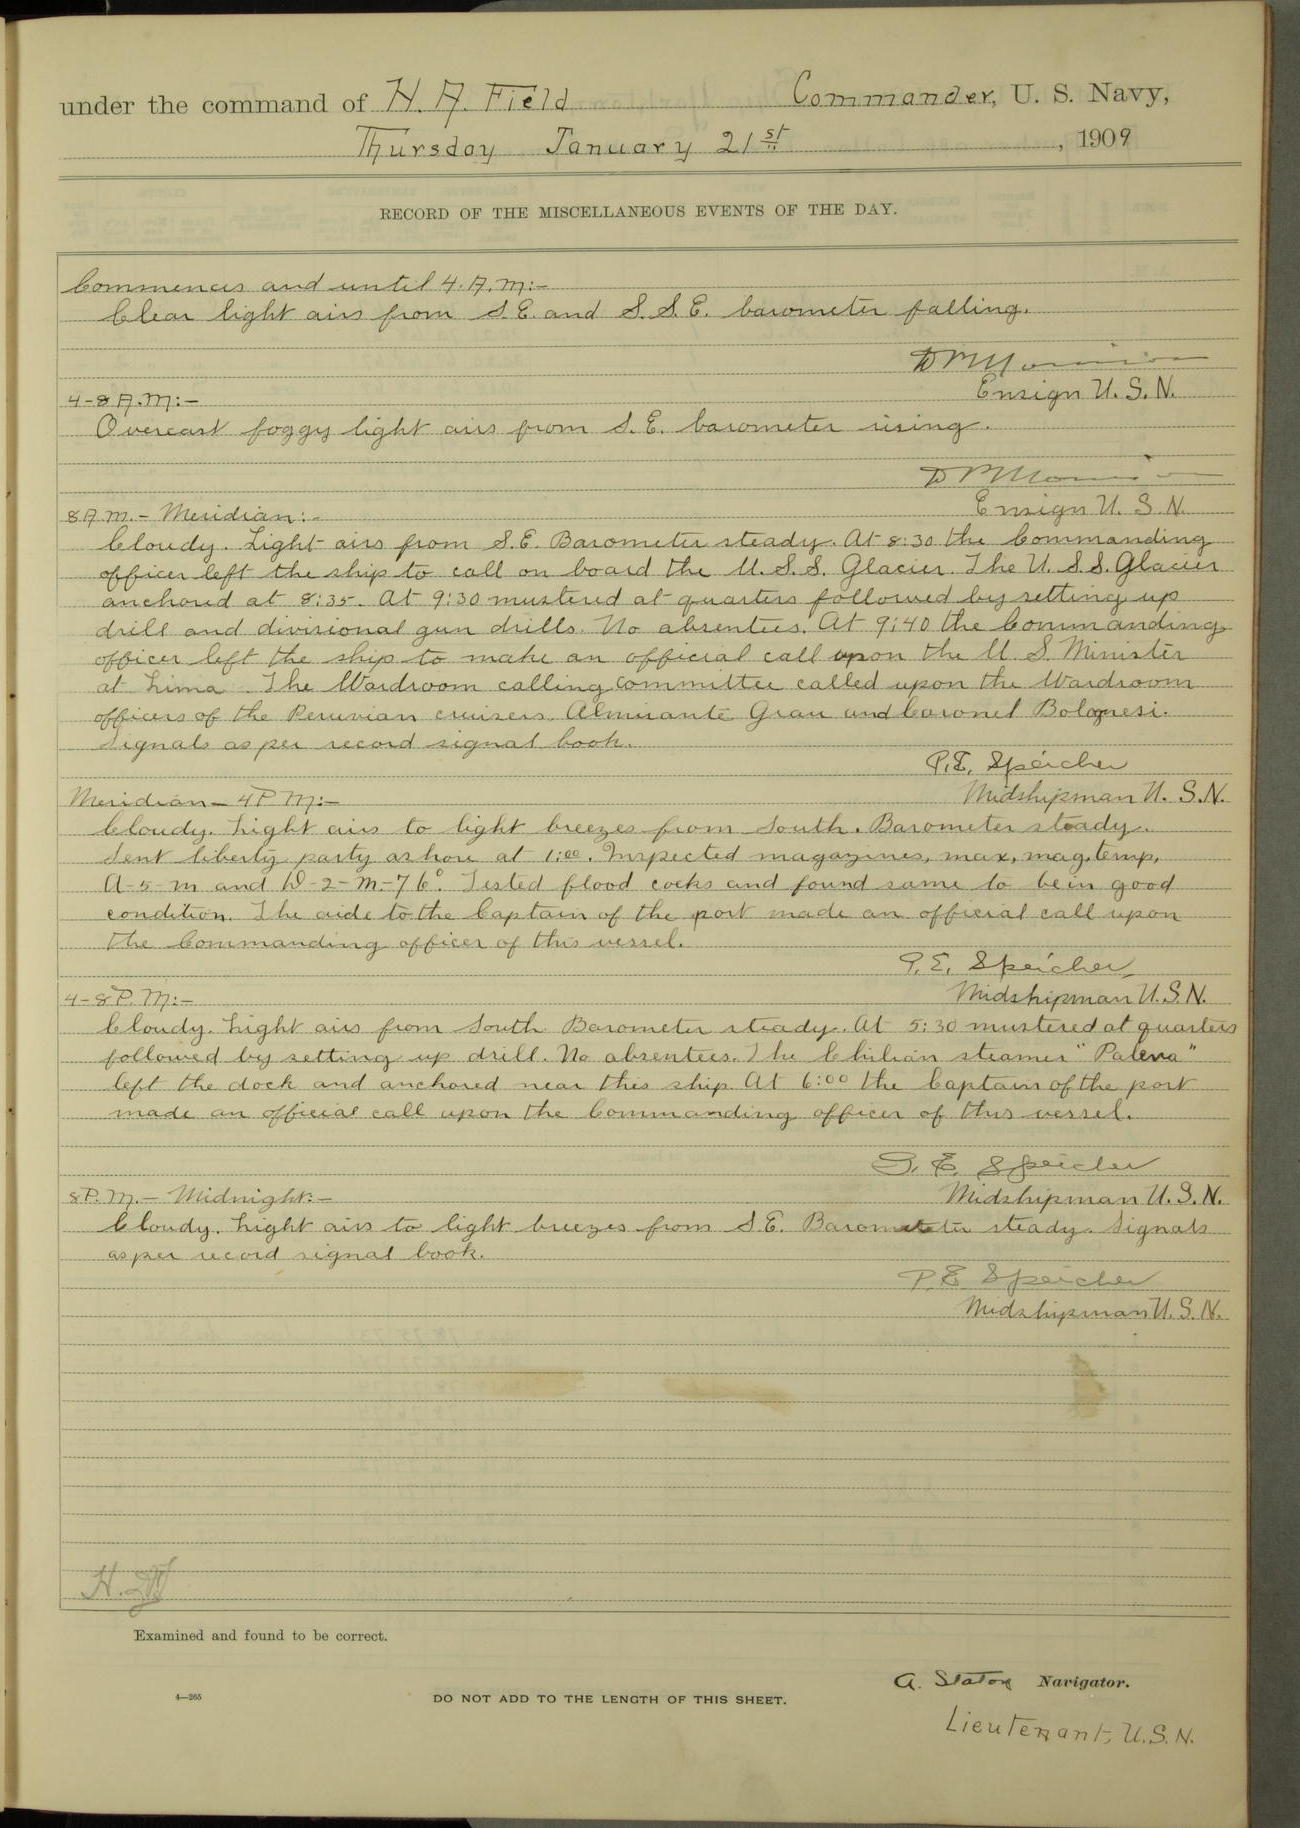 under the command of H. A. Field Commander, U. S. Navy,
Thursday January 21st, 1909
RECORD OF THE MISCELLANEOUS EVENTS OF THE DAY.
Commences and until 4. A. M:-
Clear light airs from S. E. and S. S. E. barometer falling.
Ensign U. S. N.
4-8 A. M:-
Overcast foggy light airs from S. E. barometer rising.
Ensign U. S. N.
8 A. M. - Meridian:-
Cloudy. Light airs from S. E. Barometer steady. At 8:30 the Commanding
officer left the ship to call on board the U. S. S. Glacier. The U. S. S. Glacier
anchored at 8:35. At 9:30 mustered at quarters followed by setting up
drill and divisional gun drills. No absentees. At 9:40 the Commanding
officer left the ship to make an official call upon the U. S. Minister
at Lima. The Wardroom calling committee called upon the Wardroom
officers of the Peruvian cruisers. Almirante Grau and Coronel Bolognesi.
Signals as per record signal book.
P. E. Speicher
Midshipman U. S. N.
Meridian - 4 P M:-
Cloudy. Light airs to light breezes from South. Barometer steady.
Sent liberty party ashore at 1:00. Inspected magazines, max, mag. temp,
A-5-m and D-2-M-76°. Tested flood cocks and found same to be in good
condition. The aide to the Captain of the port made an official call upon
the Commanding officer of this vessel.
P. E. Speicher
Midshipman U. S. N.
4-8 P. M:-
Cloudy. Light airs from South Barometer steady. At 5:30 mustered at quarters
followed by setting up drill. No absentees. The Chilian steamer "Palena"
left the dock and anchored near this ship. At 6:00 the Captain of the port
made an official call upon the Commanding officer of this vessel.
P. E. Speicher
Midshipman U. S. N.
8 P. M. - Midnight:-
Cloudy. Light airs to light breezes from S. E. Barometer steady. Signals
as per record signal book.
P. E. Speicher
Midshipman U. S. N.
Examined and found to be correct.
A. Staton Navigator.
4—265
DO NOT ADD TO THE LENGTH OF THIS SHEET.
Lieutenant, U. S. N.